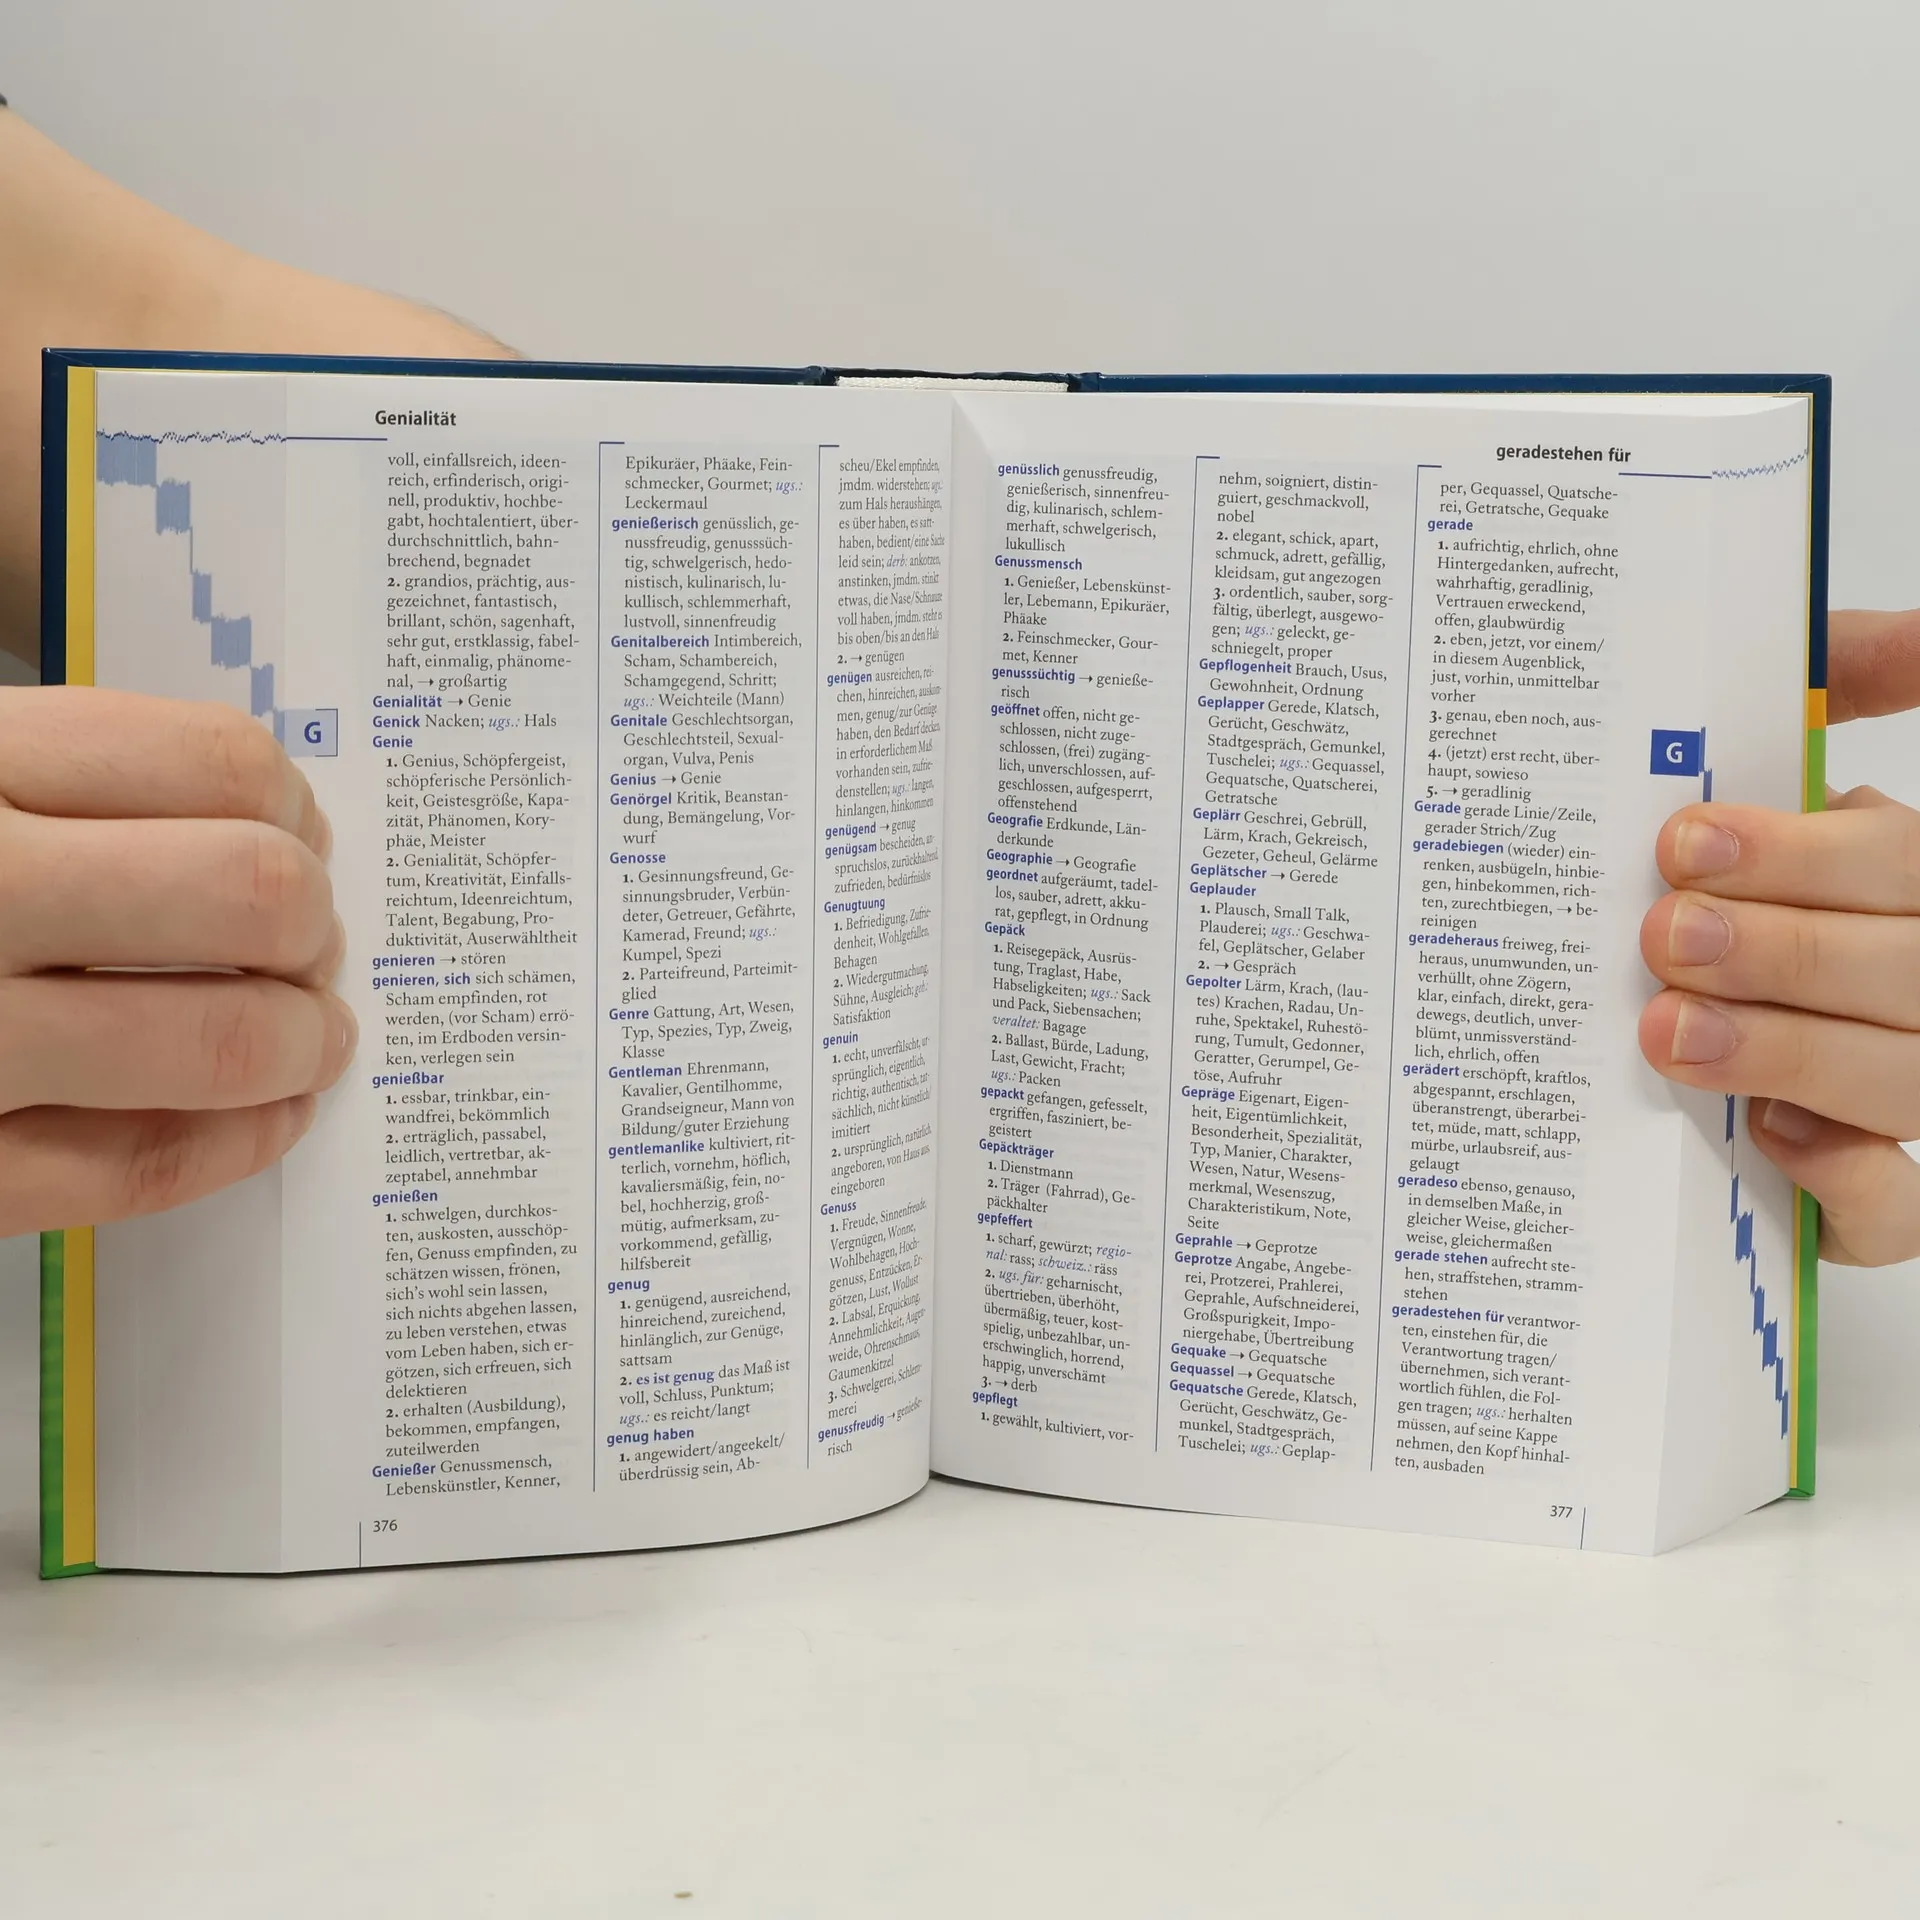 Genialität
voll, einfallsreich, ideen-
reich, erfinderisch, origi-
nell, produktiv, hochbe-
gabt, hochtalentiert, über-
durchschnittlich, bahn-
brechend, begnadet
2. grandios, prächtig, aus-
gezeichnet, fantastisch,
brillant, schön, sagenhaft,
sehr gut, erstklassig, fabel-
haft, einmalig, phänome-
nal, → großartig
Genialität → Genie
Genick Nacken; ugs.: Hals
Genie
1. Genius, Schöpfergeist,
schöpferische Persönlich-
keit, Geistesgröße, Kapa-
zität, Phänomen, Kory-
phäe, Meister
2. Genialität, Schöpfer-
tum, Kreativität, Einfalls-
reichtum, Ideenreichtum,
Talent, Begabung, Pro-
duktivität, Auserwähltheit
genieren → stören
genieren, sich sich schämen,
Scham empfinden, rot
werden, (vor Scham) errö-
ten, im Erdboden versin-
ken, verlegen sein
genießbar
1. essbar, trinkbar, ein-
wandfrei, bekömmlich
2. erträglich, passabel,
leidlich, vertretbar, ak-
zeptabel, annehmbar
genießen
1. schwelgen, durchkos-
ten, auskosten, ausschöp-
fen, Genuss empfinden, zu
schätzen wissen, frönen,
sich's wohl sein lassen,
sich nichts abgehen lassen,
zu leben verstehen, etwas
vom Leben haben, sich er-
götzen, sich erfreuen, sich
delektieren
2. erhalten (Ausbildung),
bekommen, empfangen,
zuteilwerden
Genießer Genussmensch,
Lebenskünstler, Kenner,
Epikuräer, Phäake, Fein-
schmecker, Gourmet; ugs.:
Leckermaul
genießerisch genüsslich, ge-
nussfreudig, genusssüch-
tig, schwelgerisch, hedo-
nistisch, kulinarisch, lu-
kullisch, schlemmerhaft,
lustvoll, sinnenfreudig
Genitalbereich Intimbereich,
Scham, Schambereich,
Schamgegend, Schritt;
ugs.: Weichteile (Mann)
Genitale Geschlechtsorgan,
Geschlechtsteil, Sexual-
organ, Vulva, Penis
Genius → Genie
Genörgel Kritik, Beanstan-
dung, Bemängelung, Vor-
wurf
Genosse
1. Gesinnungsfreund, Ge-
sinnungsbruder, Verbün-
deter, Getreuer, Gefährte,
Kamerad, Freund; ugs.:
Kumpel, Spezi
2. Parteifreund, Parteimit-
glied
Genre Gattung, Art, Wesen,
Typ, Spezies, Typ, Zweig,
Klasse
Gentleman Ehrenmann,
Kavalier, Gentilhomme,
Grandseigneur, Mann von
Bildung/guter Erziehung
gentlemanlike kultiviert, rit-
terlich, vornehm, höflich,
kavaliersmäßig, fein, no-
bel, hochherzig, groß-
mütig, aufmerksam, zu-
vorkommend, gefällig,
hilfsbereit
genug
1. genügend, ausreichend,
hinreichend, zureichend,
hinlänglich, zur Genüge,
sattsam
2. es ist genug das Maß ist
voll, Schluss, Punktum;
ugs.: es reicht/langt
genug haben
1. angewidert/angeekelt/
überdrüssig sein, Ab-
scheu/Ekel empfinden,
jmdm. widerstehen; ugs.:
zum Hals heraushängen,
es über haben, es satt-
haben, bedient/eine Sache
leid sein; derb: ankotzen,
anstinken, jmdm. stinkt
etwas, die Nase/Schnauze
voll haben, jmdm. steht es
bis oben/bis an den Hals
2. → genügen
genügen ausreichen, rei-
chen, hinreichen, auskom-
men, genug/zur Genüge
haben, den Bedarf decken,
in erforderlichem Maß
vorhanden sein, zufrie-
denstellen; ugs.: langen,
hinlangen, hinkommen
genügend → genug
genügsam bescheiden, an-
spruchslos, zurückhaltend,
zufrieden, bedürfnislos
Genugtuung
1. Befriedigung, Zufrie-
denheit, Wohlgefallen,
Behagen
2. Wiedergutmachung,
Sühne, Ausgleich; geh.:
Satisfaktion
genuin
1. echt, unverfälscht, ur-
sprünglich, eigentlich,
richtig, authentisch, tat-
sächlich, nicht künstlich/
imitiert
2. ursprünglich, natürlich,
angeboren, von Haus aus,
eingeboren
Genuss
1. Freude, Sinnenfreude,
Vergnügen, Wonne,
Wohlbehagen, Hoch-
genuss, Entzücken, Er-
götzen, Lust, Wollust
2. Labsal, Erquickung,
Annehmlichkeit, Augen-
weide, Ohrenschmaus,
Gaumenkitzel
3. Schwelgerei, Schlem-
merei
genussfreudig → genieße-
risch
G
376
geradestehen für
genüsslich genussfreudig,
genießerisch, sinnenfreu-
dig, kulinarisch, schlem-
merhaft, schwelgerisch,
lukullisch
Genussmensch
1. Genießer, Lebenskünst-
ler, Lebemann, Epikuräer,
Phäake
2. Feinschmecker, Gour-
met, Kenner
genusssüchtig → genieße-
risch
geöffnet offen, nicht ge-
schlossen, nicht zuge-
schlossen, (frei) zugäng-
lich, unverschlossen, auf-
geschlossen, aufgesperrt,
offenstehend
Geografie Erdkunde, Län-
derkunde
Geographie → Geografie
geordnet aufgeräumt, tadel-
los, sauber, adrett, akku-
rat, gepflegt, in Ordnung
Gepäck
1. Reisegepäck, Ausrüs-
tung, Traglast, Habe,
Habseligkeiten; ugs.: Sack
und Pack, Siebensachen;
veraltet: Bagage
2. Ballast, Bürde, Ladung,
Last, Gewicht, Fracht;
ugs.: Packen
gepackt gefangen, gefesselt,
ergriffen, fasziniert, be-
geistert
Gepäckträger
1. Dienstmann
2. Träger (Fahrrad), Ge-
päckhalter
gepfeffert
1. scharf, gewürzt; regio-
nal: rass; schweiz.: räss
2. ugs. für: geharnischt,
übertrieben, überhöht,
übermäßig, teuer, kost-
spielig, unbezahlbar, un-
erschwinglich, horrend,
happig, unverschämt
3. → derb
gepflegt
1. gewählt, kultiviert, vor-
nehm, soigniert, distin-
guiert, geschmackvoll,
nobel
2. elegant, schick, apart,
schmuck, adrett, gefällig,
kleidsam, gut angezogen
3. ordentlich, sauber, sorg-
fältig, überlegt, ausgewo-
gen; ugs.: geleckt, ge-
schniegelt, proper
Gepflogenheit Brauch, Usus,
Gewohnheit, Ordnung
Geplapper Gerede, Klatsch,
Gerücht, Geschwätz,
Stadtgespräch, Gemunkel,
Tuschelei; ugs.: Gequassel,
Gequatsche, Quatscherei,
Getratsche
Geplärr Geschrei, Gebrüll,
Lärm, Krach, Gekreisch,
Gezeter, Geheul, Gelärme
Geplätscher → Gerede
Geplauder
1. Plausch, Small Talk,
Plauderei; ugs.: Geschwa-
fel, Geplätscher, Gelaber
2. → Gespräch
Gepolter Lärm, Krach, (lau-
tes) Krachen, Radau, Un-
ruhe, Spektakel, Ruhestö-
rung, Tumult, Gedonner,
Geratter, Gerumpel, Ge-
töse, Aufruhr
Gepräge Eigenart, Eigen-
heit, Eigentümlichkeit,
Besonderheit, Spezialität,
Typ, Manier, Charakter,
Wesen, Natur, Wesens-
merkmal, Wesenszug,
Charakteristikum, Note,
Seite
Geprahle → Geprotze
Geprotze Angabe, Angebe-
rei, Protzerei, Prahlerei,
Geprahle, Aufschneiderei,
Großspurigkeit, Impo-
niergehabe, Übertreibung
Gequake → Gequatsche
Gequassel → Gequatsche
Gequatsche Gerede, Klatsch,
Gerücht, Geschwätz, Ge-
munkel, Stadtgespräch,
Tuschelei; ugs.: Geplap-
per, Gequassel, Quatsche-
rei, Getratsche, Gequake
gerade
1. aufrichtig, ehrlich, ohne
Hintergedanken, aufrecht,
wahrhaftig, geradlinig,
Vertrauen erweckend,
offen, glaubwürdig
2. eben, jetzt, vor einem/
in diesem Augenblick,
just, vorhin, unmittelbar
vorher
3. genau, eben noch, aus-
gerechnet
4. (jetzt) erst recht, über-
haupt, sowieso
5. → geradlinig
Gerade gerade Linie/Zeile,
gerader Strich/Zug
geradebiegen (wieder) ein-
renken, ausbügeln, hinbie-
gen, hinbekommen, rich-
ten, zurechtbiegen, → be-
reinigen
geradeheraus freiweg, frei-
heraus, unumwunden, un-
verhüllt, ohne Zögern,
klar, einfach, direkt, gera-
dewegs, deutlich, unver-
blümt, unmissverständ-
lich, ehrlich, offen
gerädert erschöpft, kraftlos,
abgespannt, erschlagen,
überanstrengt, überarbei-
tet, müde, matt, schlapp,
mürbe, urlaubsreif, aus-
gelaugt
geradeso ebenso, genauso,
in demselben Maße, in
gleicher Weise, gleicher-
weise, gleichermaßen
gerade stehen aufrecht ste-
hen, straffstehen, stramm-
stehen
geradestehen für verantwor-
ten, einstehen für, die
Verantwortung tragen/
übernehmen, sich verant-
wortlich fühlen, die Fol-
gen tragen; ugs.: herhalten
müssen, auf seine Kappe
nehmen, den Kopf hinhal-
ten, ausbaden
G
377